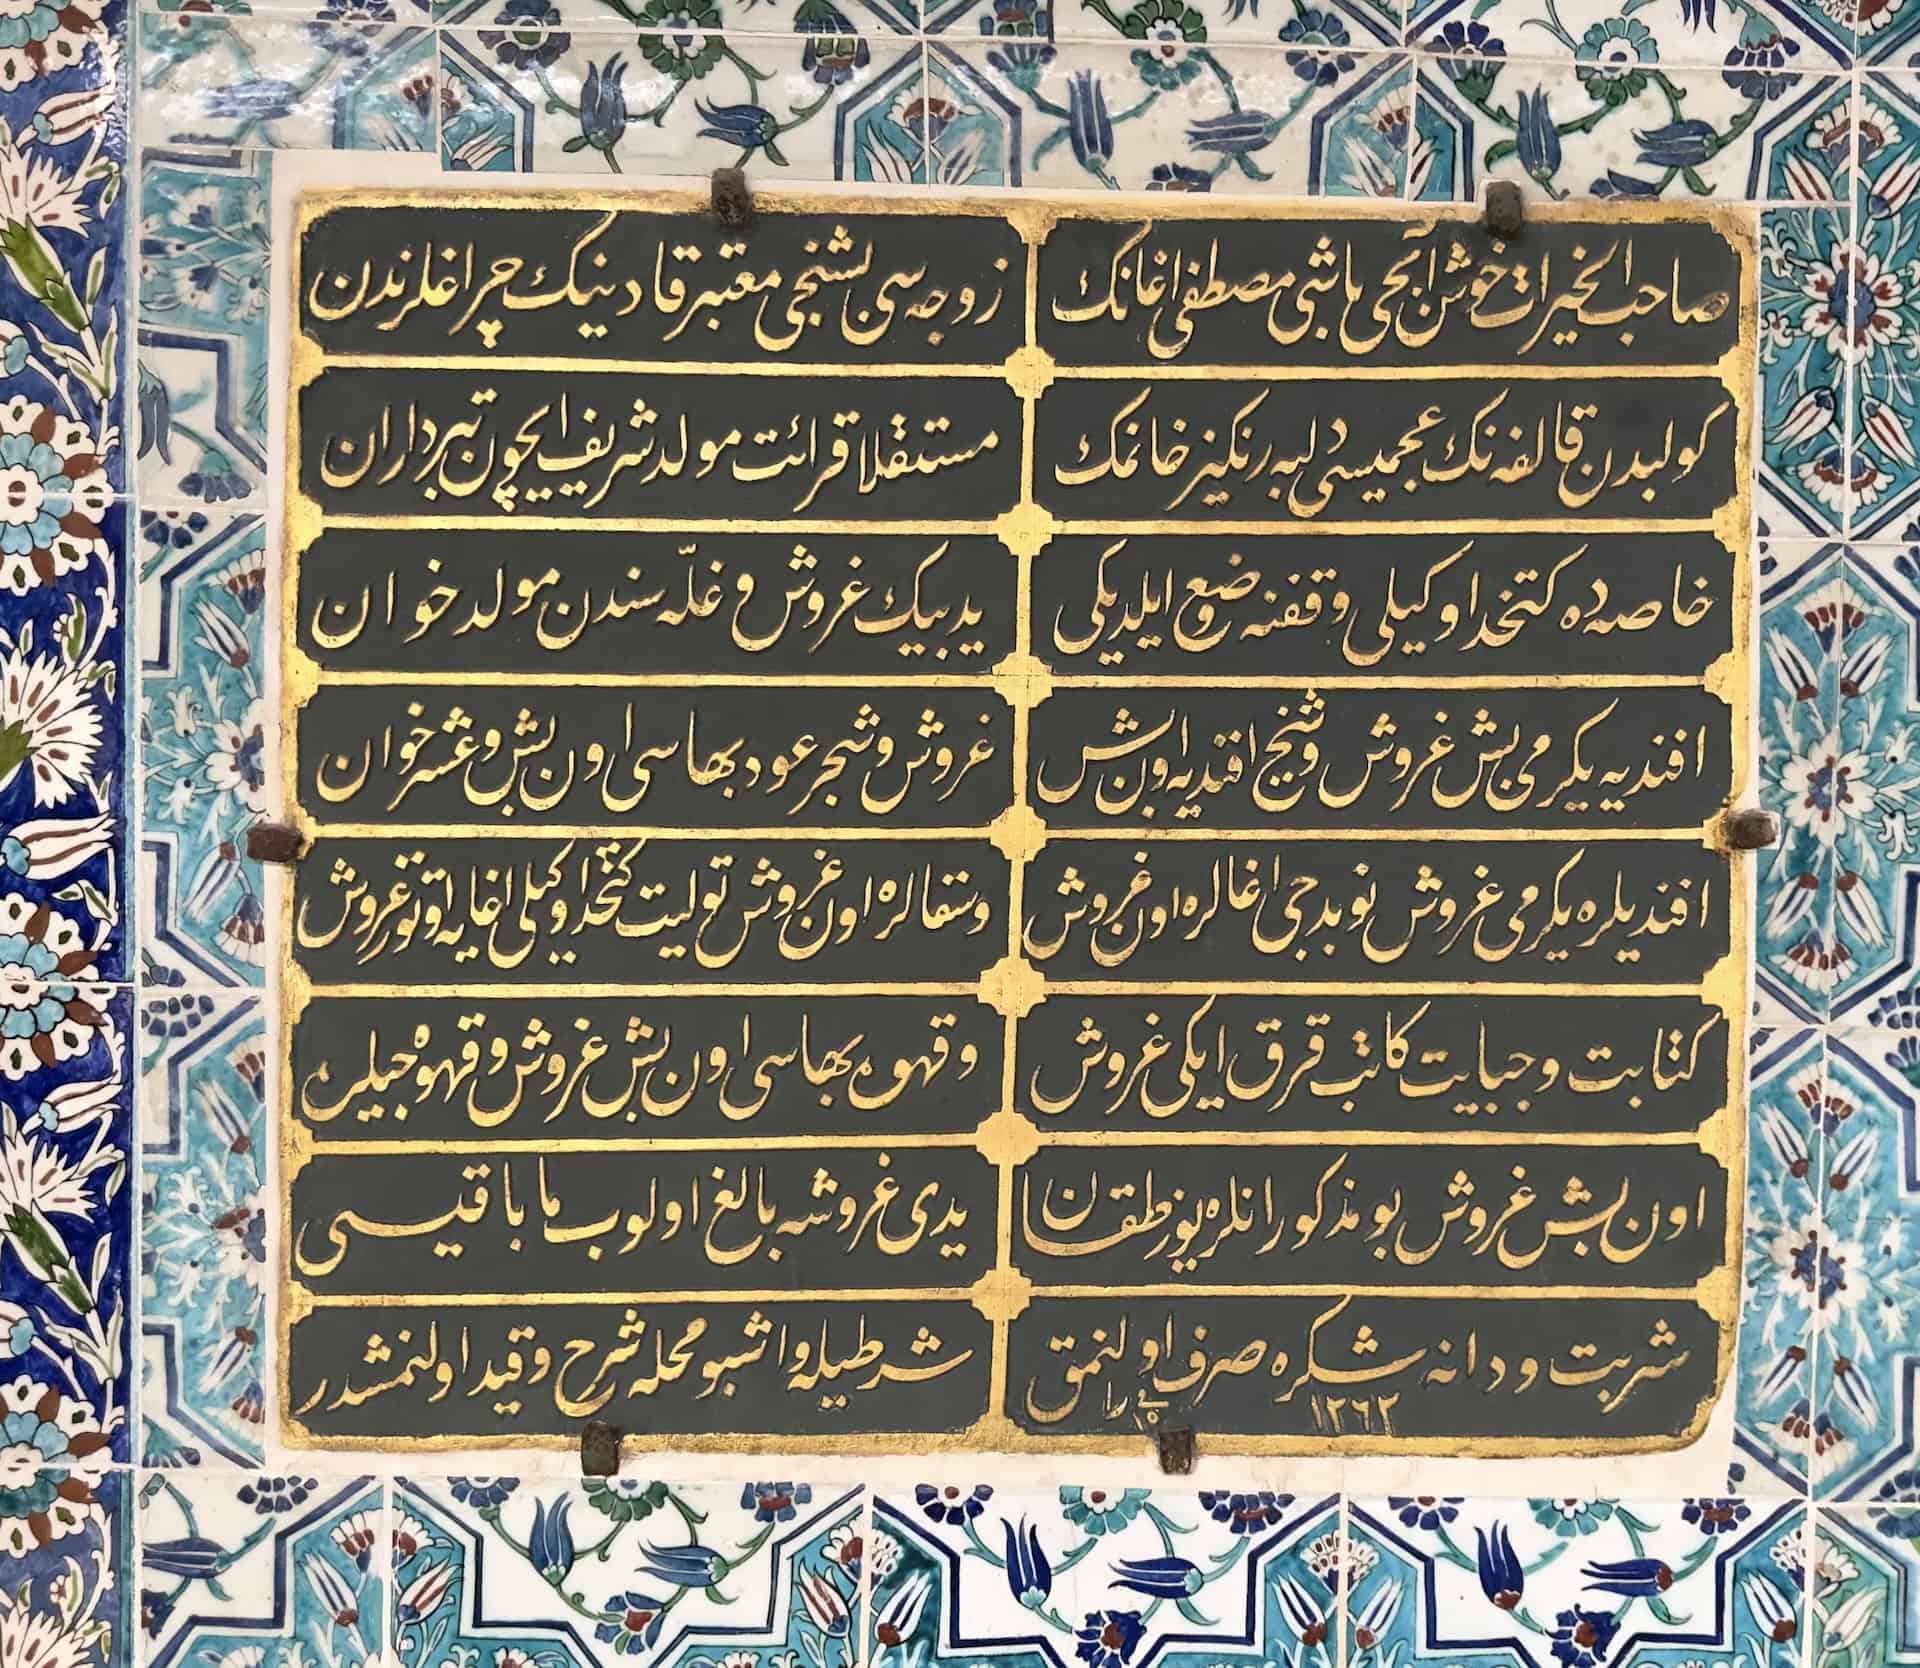 صاحب الخيرات خوش‌آبجی باشی مصطفی اغانك
زوجه سی بشنجی معتبر قادینك چراغلرندن
كولبدن قالفه نك عجمیسی دلبه رنكیز خانمك
مستقلا قرائت مولد شریف ایچون تبرداران
خاصه ده كتخدا وكیلی وقفنه وضع ایلدیكی
یدیبیك غروش و غلّه سندن مولد خوان
افندیه یكرمی بش غروش و شیخ افندیه اون بش
غروش و شجر عود بهاسی اون بش و عشر خوان
افندیلره یكرمی غروش نوبدجی اغالره اون غروش
و سقالره اون غروش تولیت كتخدا وكیلی اغایه اوتوز غروش
كتابت و جبایت كاتب قرق ایكی غروش
و قهوه بهاسی اون بش غروش و قهوه جیلره
اون بش غروش بو مذكورانلره یوز طقسان
یدی غروشه بالغ اولوب ما باقیسی
شربت و دانه شكره صرف اولنمق
شرطیله و اشبو محله شرح و قید اولنمشدر
١٢٦٢